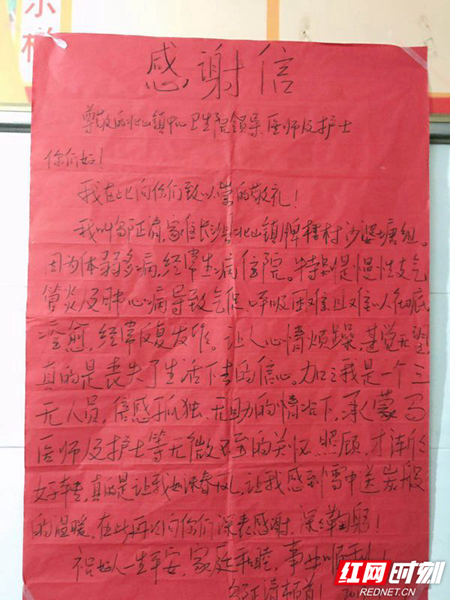 感谢信
尊敬的北山镇中心卫生院领导医师及护士
你们好！
我在此向你们致以崇的敬礼！
我叫 正 家住长沙北山镇牌楼村沙婆塘组。
因为体弱多病，经常生病住院。特别是慢性支气
管炎及肺心病导致气促、呼吸困难且又难以彻底
治愈，经常反复发作。让人心情烦躁，甚觉无望
真的是丧失了生活下去的信心。加之我是一个三
无人员，倍感孤独、无助的情况下，承蒙马
医师及护士等无微不至的关怀、照顾，才
好转，真的是让我如沐春风，让我感到雪中送炭般
的温暖，在此再次向你们深表感谢，深深鞠躬！
祝好人一生平安，家庭和睦，事业顺利！
红网时刻
REDNET.CN